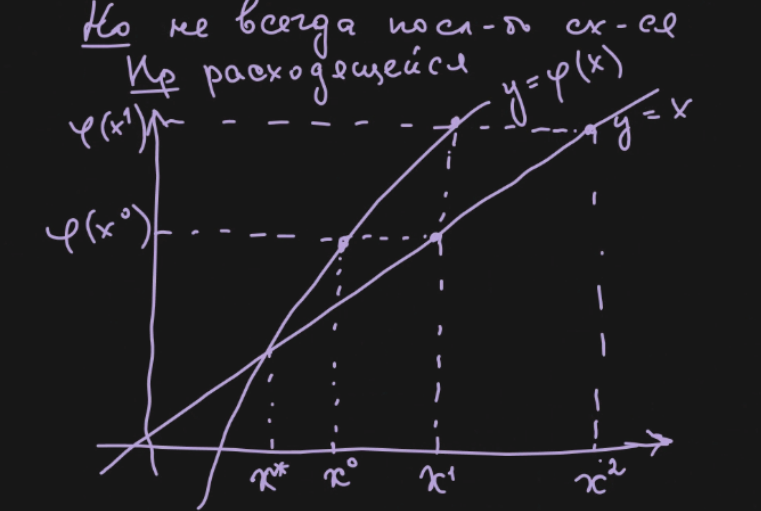 Но не всегда посл-ть сх-ся
Пр расходящейся
y = φ(x)
φ(x¹)
y = x
φ(x⁰)
x* x⁰ x¹ x²